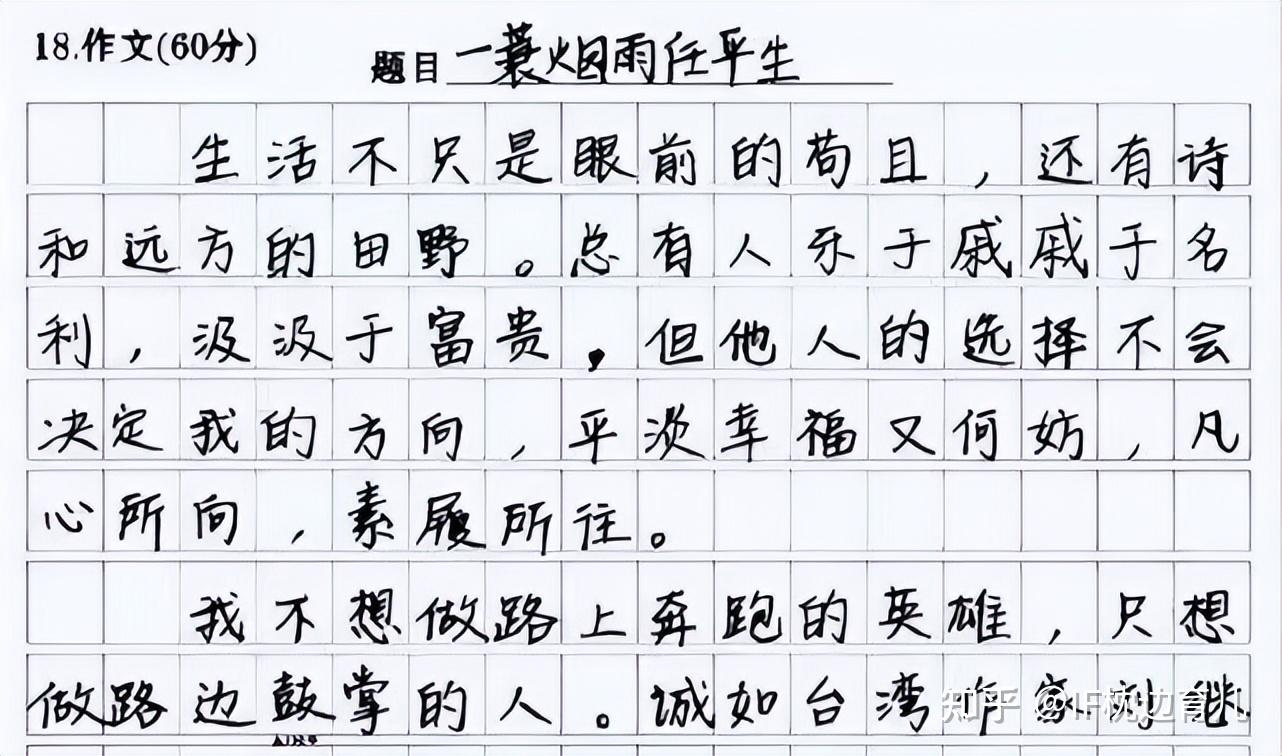 18.作文(60分)
题目 一蓑烟雨任平生
生活不只是眼前的苟且，还有诗
和远方的田野。总有人乐于戚戚于名
利，汲汲于富贵，但他人的选择不会
决定我的方向，平淡幸福又何妨，凡
心所向，素履所往。
我不想做路上奔跑的英雄，只想
做路边鼓掌的人。诚如台湾作家刘继
知乎 @IF枕边育儿